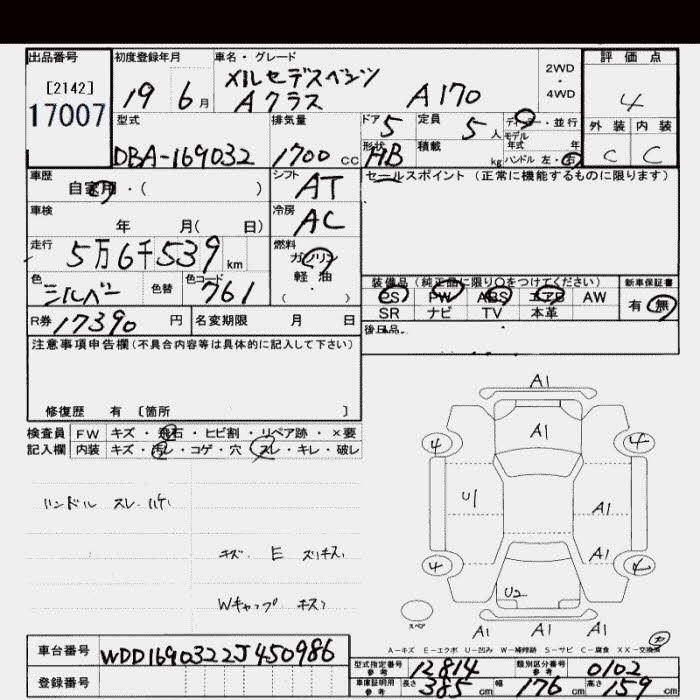 出品番号 初度登録年月 車名・グレード 2WD・4WD 評価点
[2142]
17007
19 6月 メルセデスベンツ
Aクラス A170 4
型式 排気量 ドア 5 定員 5人 ディーラー・並行
DBA-169032 1700cc 形状 HB 積載 kg モデル年式 年
ハンドル 左・右
外装 内装
C C
車歴 自家用・( )
シフト AT
セールスポイント(正常に機能するものに限ります)
車検 年 月( 日)
冷房 AC
走行 5万6千539km
燃料 ガソリン
軽・油
・( )
色 シルバー 色替 色コード 761
装備品(純正品に限り○をつけてください) 新車保証書
PS PW ABS エアB AW 有 無
SR ナビ TV 本革
R券 17390円 名変期限 月 日
後日品.
注意事項申告欄(不具合内容等は具体的に記入して下さい)
修復歴 有 [箇所 ]
検査員 FW キズ・飛石・ヒビ割・リペア跡・×要
記入欄 内装 キズ・汚レ・コゲ・穴・スレ・キレ・破レ
ハンドル スレ
キズ E スリキズ
Wキャップ キズ
A1
A1
4 4
U1 A1
A1
4 4
U2
スペア
A1 A1 A1
A-キズ E-エクボ U-凹み W-補修跡 S-サビ C-腐食 XX-交換済
車台番号 WDD1690322J450986
登録番号
型式指定番号 参考 12814 類別区分番号 参考 0102
車庫証明用 参考 長さ 385cm 幅 176cm 高さ 159cm